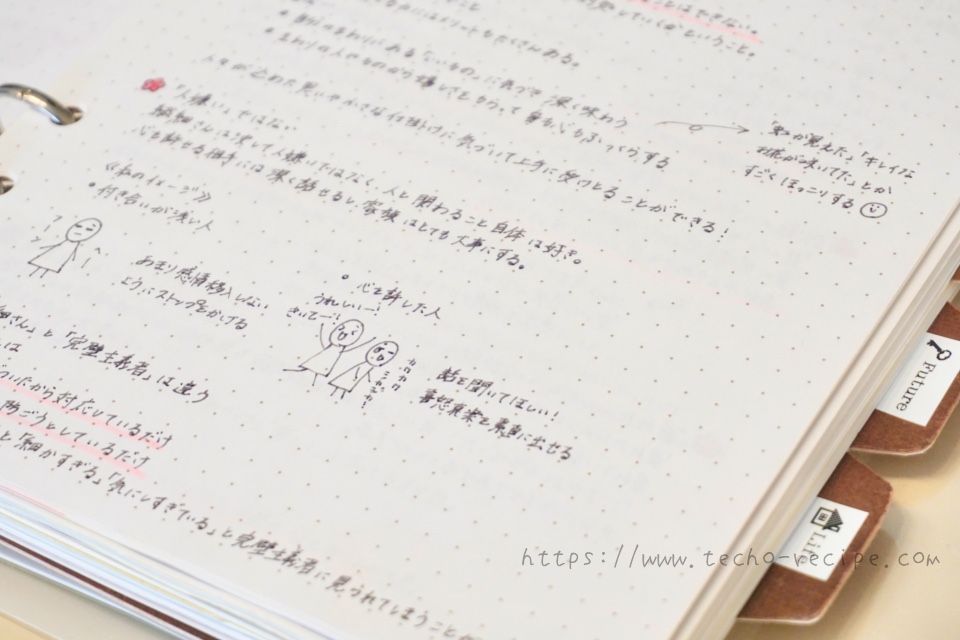 ことはできない。
していくかということ。
こと
にはメリットもたくさんある。
・自分のまわりにある「ないもの」に気づき 深く味わう
・まわりの人やものから優しさをもらって 身も心もほっくりする
人々が込めた思いやかさな仕掛けに 気づいて上手に受けとることができる!
「虹が見えた」「キレイな
花が咲いてた」とか
すごくほっこりする
「人嫌い」ではない
繊細さんは決して人嫌いではなく、人と関わること自体は好き。
心を許せる相手には深く話せるし、家族はとても大事にする。
《私のイメージ》
・付き合いが浅い人
あまり感情移入しない
ようにストップをかける
・心を許した人
うれしいー!
きいてー!
話を聞いてほしい!
喜怒哀楽を素直に出せる
細さん」と「完璧主義者」は違う
は
づいたから対応しているだけ
防ごうとしているだけ
と「細かすぎる」「気にしすぎている」と完璧主義者に見られてしまうことが
Future
Life
https://www.techo-recipe.com